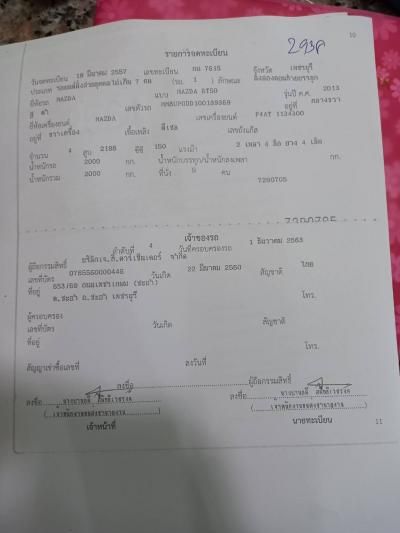 10
รายการจดทะเบียน
วันจดทะเบียน 18 มีนาคม 2557 เลขทะเบียน กม 7615 จังหวัด เพชรบุรี
ประเภท รถยนต์นั่งส่วนบุคคลไม่เกิน 7 คน (รย. 1 ) ลักษณะ
ยี่ห้อรถ MAZDA แบบ MAZDA BT50 รุ่นปี ค.ศ. 2013
สี ดำ เลขตัวรถ อยู่ที่ กลางขวา
ยี่ห้อเครื่องยนต์ MAZDA เลขเครื่องยนต์ P4AT 1134300
อยู่ที่ ขวาเครื่อง เชื้อเพลิง ดีเซล เลขถังแก๊ส
จำนวน 4 สูบ 2198 ซีซี 150 แรงม้า 2 เพลา 4 ล้อ ยาง 4 เส้น
น้ำหนักรถ 2000 กก. น้ำหนักบรรทุก/น้ำหนักลงเพลา กก.
น้ำหนักรวม 2000 กก. ที่นั่ง 5 คน
7290705
7290705
เจ้าของรถ
ลำดับที่ 4 วันที่ครอบครองรถ 1 ธันวาคม 2563
ผู้ถือกรรมสิทธิ์
เลขที่บัตร 0765560000446 วันเกิด 22 มีนาคม 2560 สัญชาติ ไทย
ที่อยู่ 653/60 ถนนเพชรเกษม (ชะอำ)
ต.ชะอำ อ.ชะอำ เพชรบุรี โทร.
ผู้ครอบครอง
เลขที่บัตร วันเกิด สัญชาติ
ที่อยู่ โทร.
สัญญาเช่าซื้อเลขที่ ลงวันที่
ลงชื่อ ผู้ถือกรรมสิทธิ์
ลงชื่อ
เจ้าหน้าที่ นายทะเบียน
11